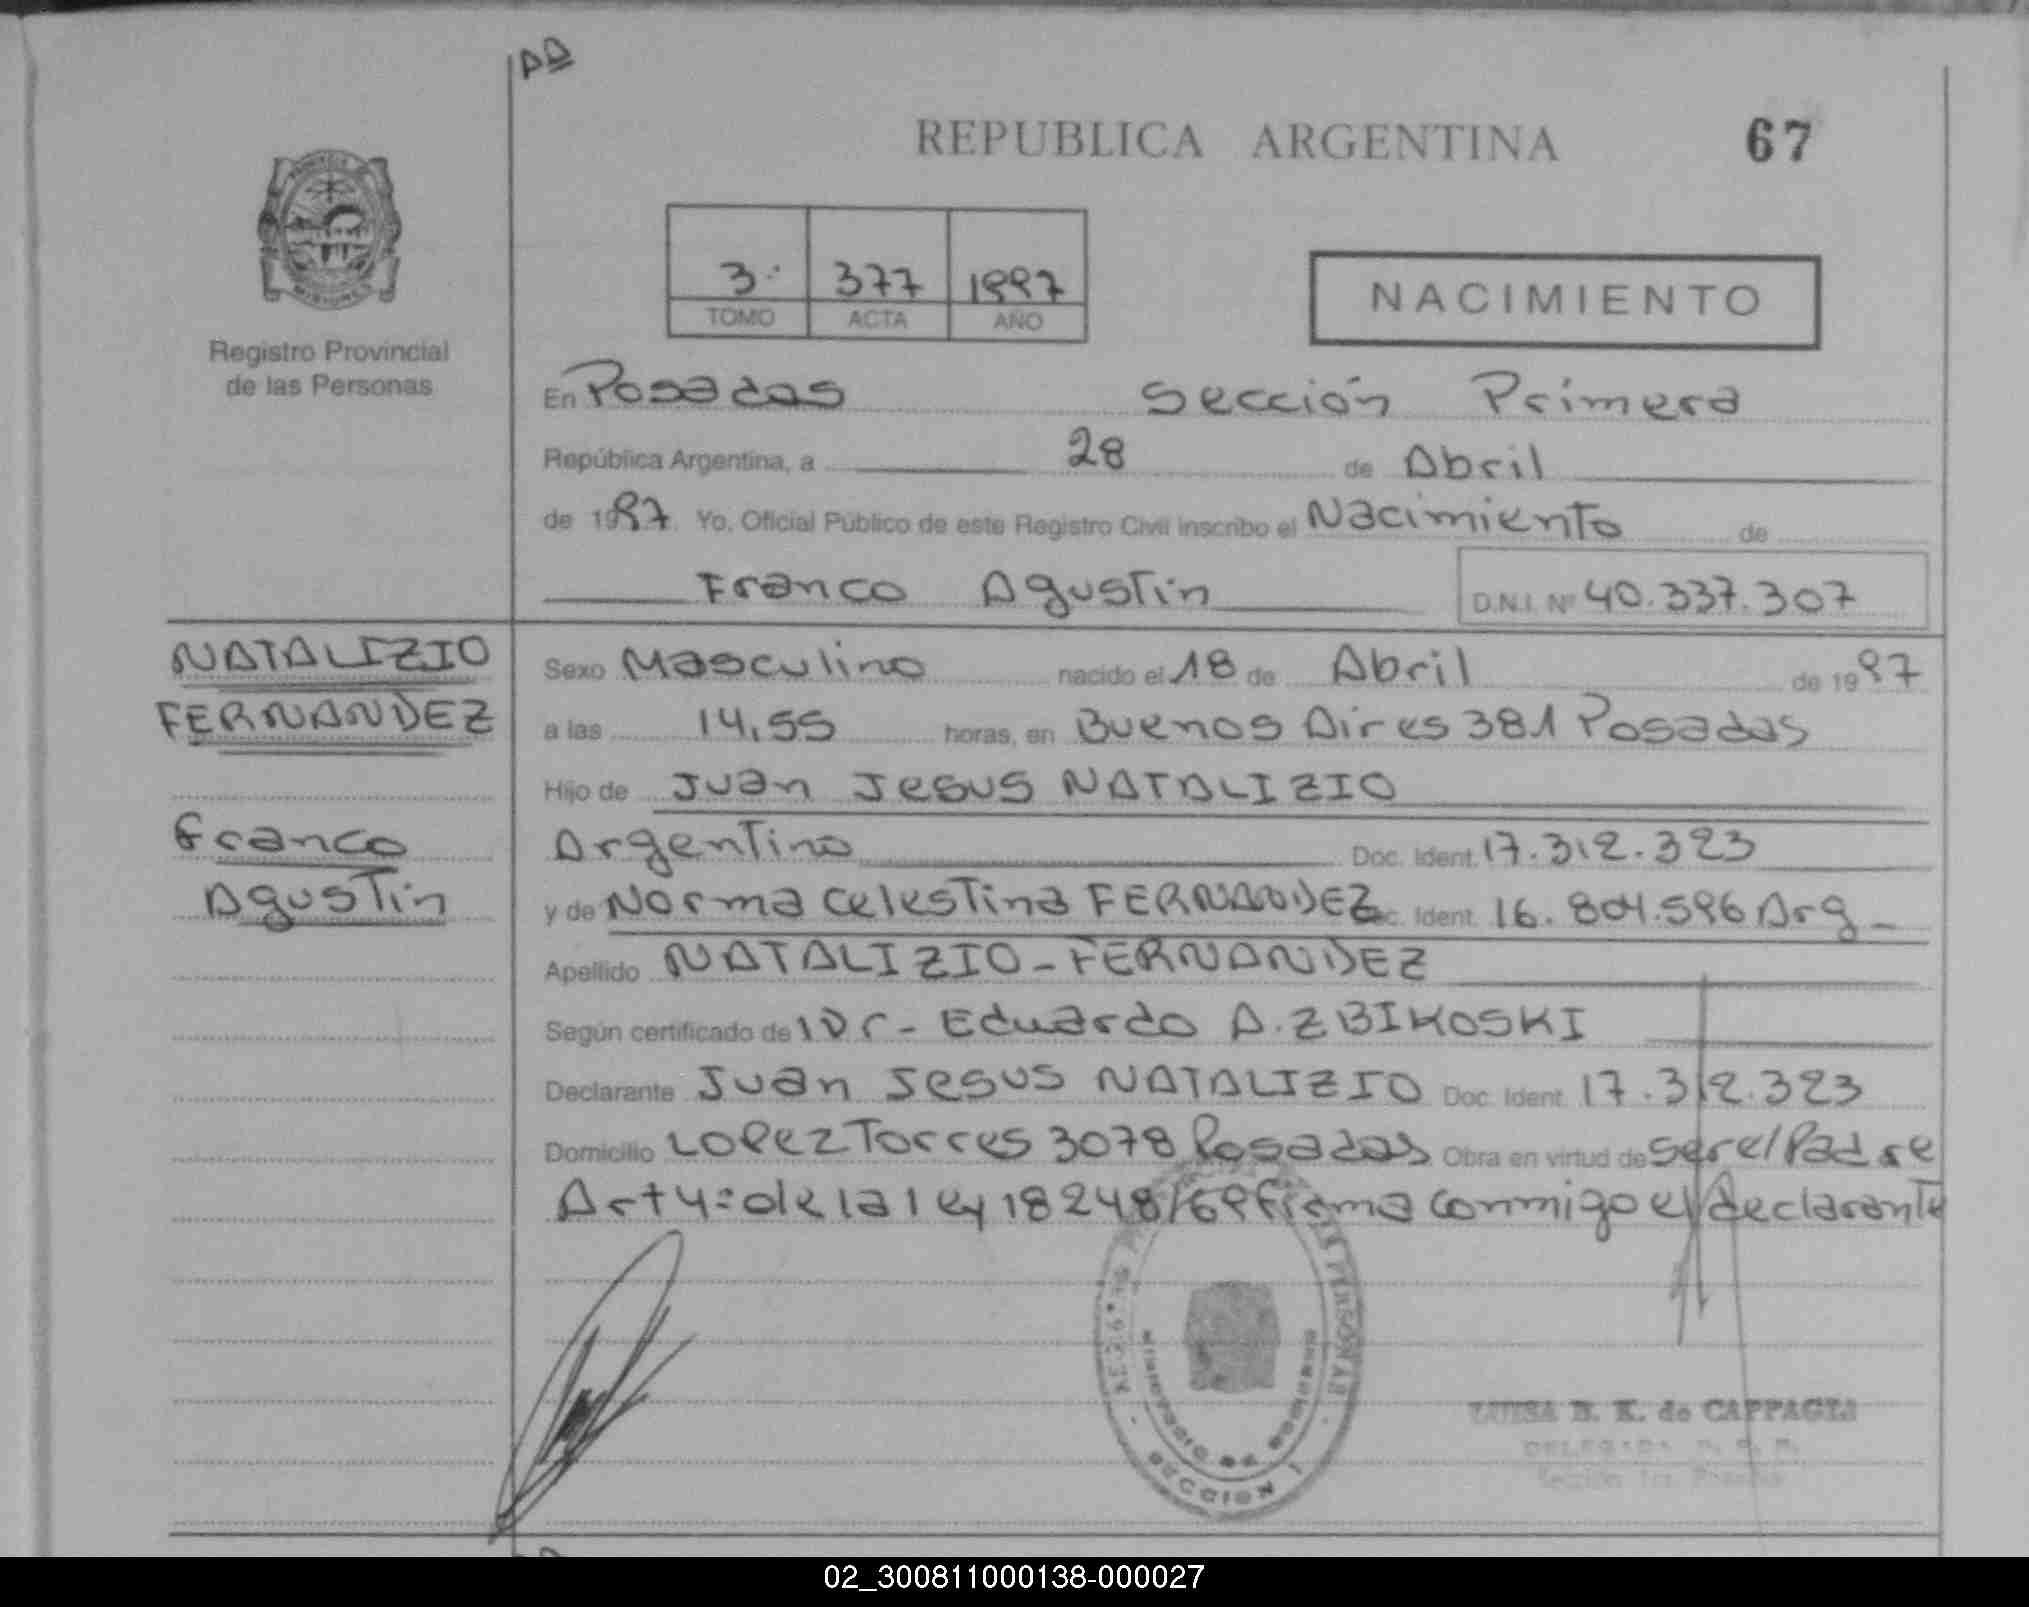 REPUBLICA ARGENTINA 67
3. 377 1997
TOMO ACTA AÑO
NACIMIENTO
MISIONES
Registro Provincial
de las Personas
En Posadas Sección Primera
República Argentina, a 28 de Abril
de 1997. Yo, Oficial Público de este Registro Civil inscribo el Nacimiento de
Franco Agustin D.N.I. Nº 40.337.307
NATALIZIO
FERNANDEZ
Franco
Agustin
Sexo Masculino nacido el 18 de Abril de 1997
a las 14,55 horas, en Buenos Aires 381 Posadas
Hijo de Juan Jesus NATALIZIO
Argentino Doc. Ident. 17.312.323
y de Norma Celestina FERNANDEZ Doc. Ident. 16.804.596 Arg_
Apellido NATALIZIO-FERNANDEZ
Según certificado de l Dr- Eduardo A. ZBIKOSKI
Declarante Juan Jesus NATALIZIO Doc. Ident. 17.312.323
Domicilio Lopez Torres 3078 Posadas Obra en virtud de ser el Padre
Art 4: de la ley 18248/69 firma conmigo el declarante
PERSONAS
MINISTERIO DE GOBIERNO
SECCION 1
LUISA B. K. de CAPPAGLI
DELEGADA
02_300811000138-000027